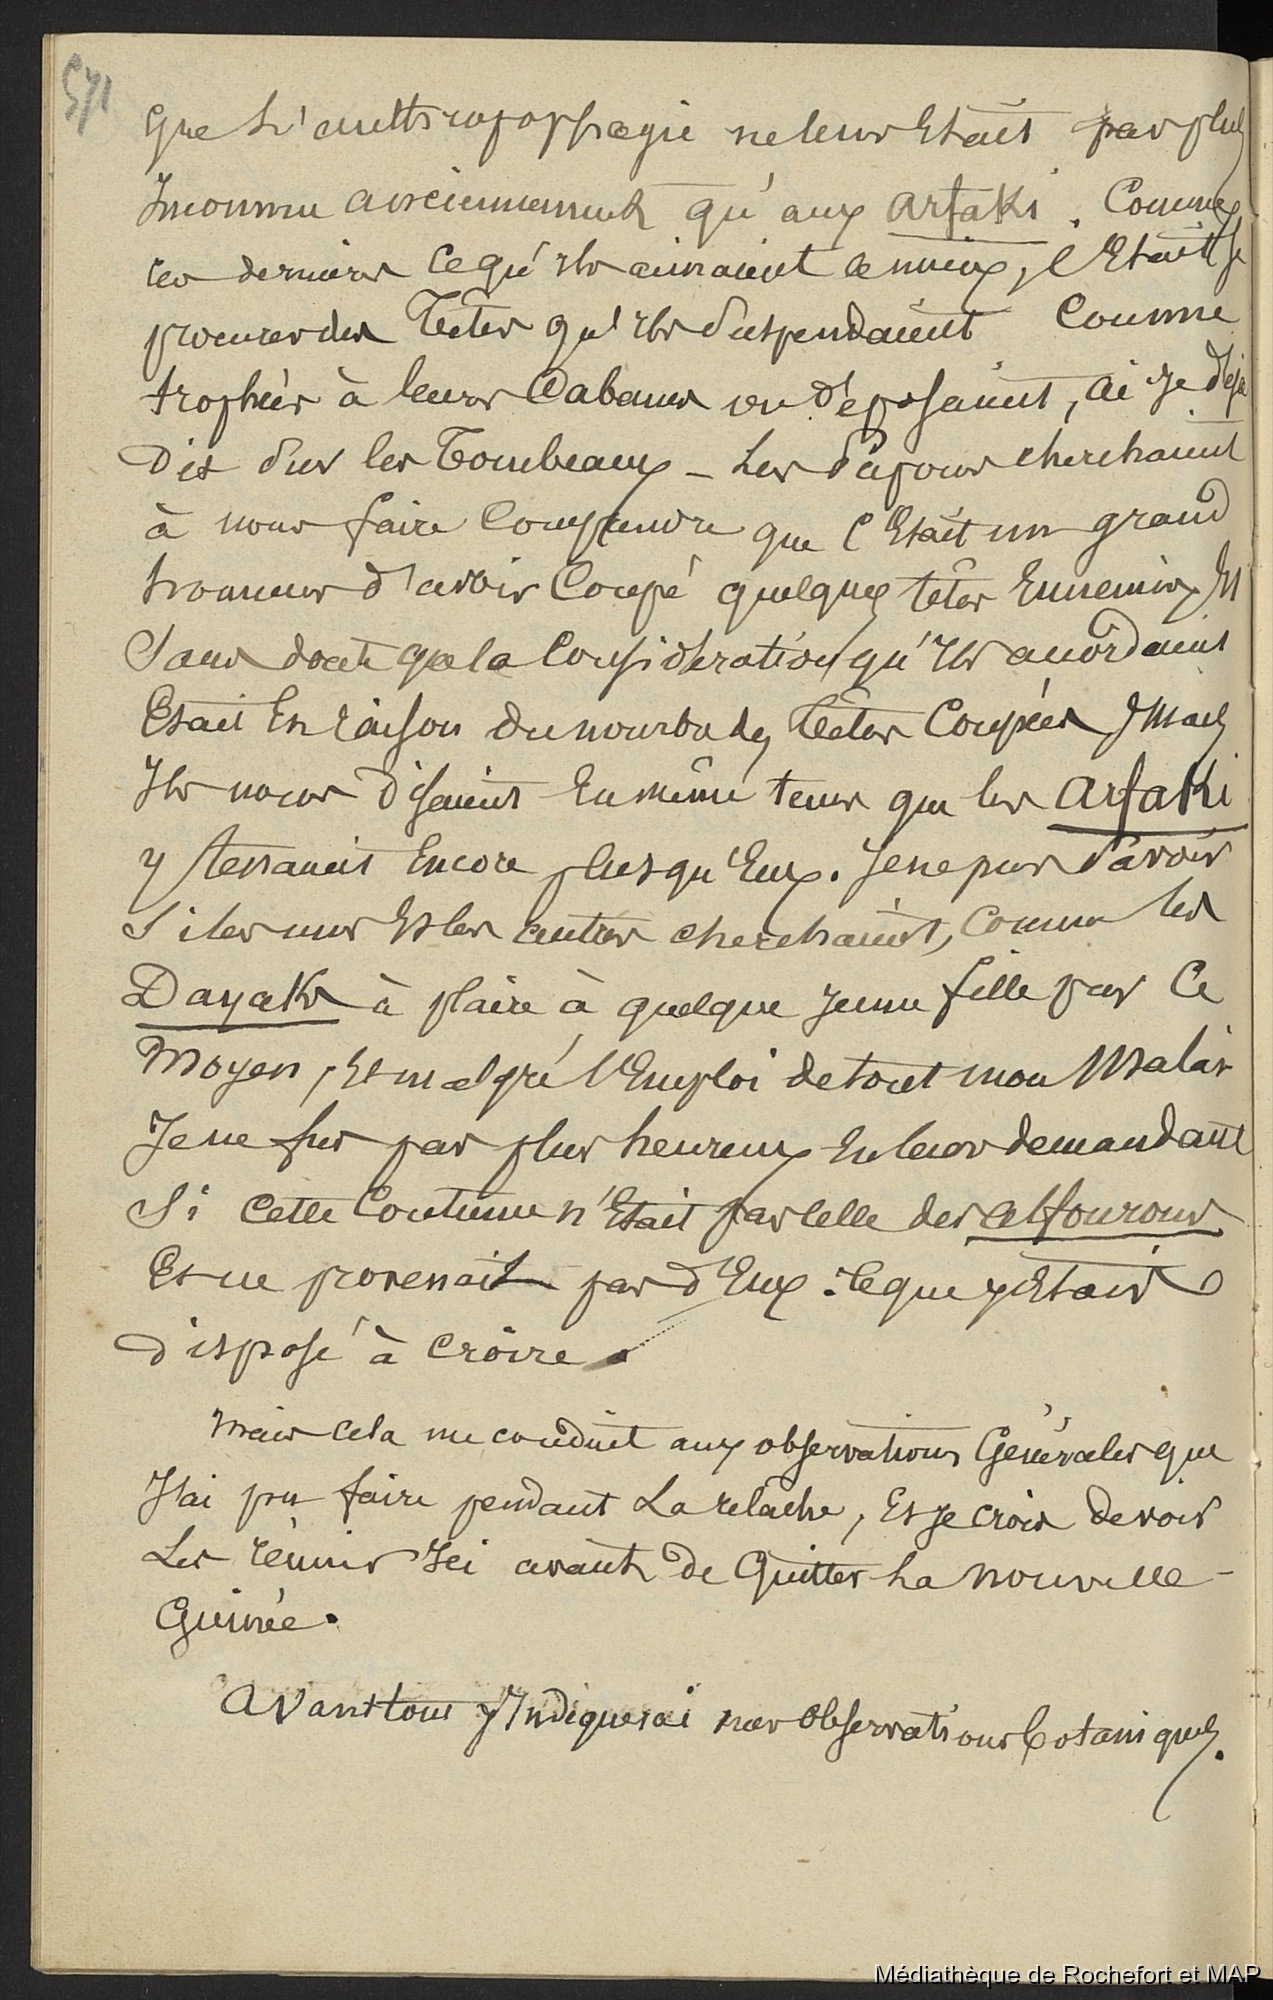 571
Que L'anthropophagie ne leur Etait pas plus
Inconnue anciennement qu'aux Arfaki. Comme
ces derniers Ce qu'ils aimaient le mieux, c'Etait se
procurer des Têtes qu'ils suspendaient Comme
trophées à leurs Cabanes ou déposaient, ai Je déjà
Dit sur les Tombeaux - Les Papous cherchaient
à nous faire Comprendre que C'Etait un grand
honneur d'avoir Coupé quelques têtes Ennemies Et
Sans doute que la Considération qu'Ils accordaient
Etait En raison du nombre des Têtes Coupées, Mais
Ils nous disaient En même tems que les Arfaki
y tenaient Encore plus qu'Eux. Je ne pus savoir
Si les uns Et les autres cherchaient, Comme les
Dayaks à plaire à quelque Jeune fille par Ce
Moyen, Et malgré l'Emploi de tout mon Malais
Je ne fus pas plus heureux En leur demandant
Si Cette Coutume n'Etait pas Celle des alfourous
Et ne provenait pas d'Eux. Ce que j'Etais
disposé à Croire.
Mais Cela me conduit aux observations Générales que
J'ai pu faire pendant La relâche, Et Je crois devoir
Les réunir Ici avant de Quitter La Nouvelle-
Guinée.
Avant tout J'Indiquerai nos Observations botaniques.
Médiathèque de Rochefort et MAP